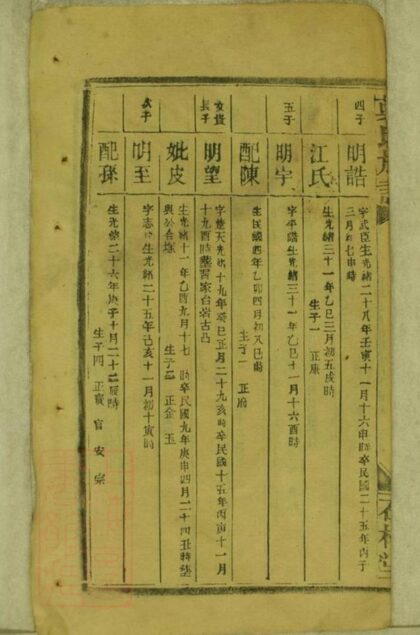 四子
明誥
字武臣生光緒二十八年壬寅十一月十六申時卒民國二十五年丙子
三月初七申時
江氏
生光緒三十一年乙巳三月初五戌時
生子一 正康
五子
明宇
字平階生光緒三十一年乙巳十一月十六酉時
配陳
生民國四年乙卯四月初又巳時
生子一 正府
長子
明望
字楚天光緒十九年癸巳正月二十九亥時卒民國十五年丙寅十一月
十九酉時塟習家台嶺古凸
妣皮
生光緒十一年乙酉九月十七 時卒民國九年庚申四月二十四丑時塟
與公合塚
生子二 正金 玉
次子
明至
字志 生光緒二十五年己亥十一月初十寅時
配孫
生光緒二十六年庚子十月二十二辰時
生子四 正賓 官 安 宗